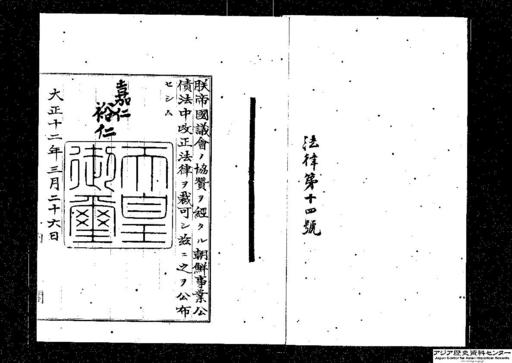 法律第十四號
朕帝國議會ノ協賛ヲ經タル朝鮮事業公
債法中改正法律ヲ裁可シ茲ニ之ヲ公布
セシム
嘉仁
裕仁
天皇御璽
大正十二年三月二十六日
アジア歴史資料センター
Japan Center for Asian Historical Records